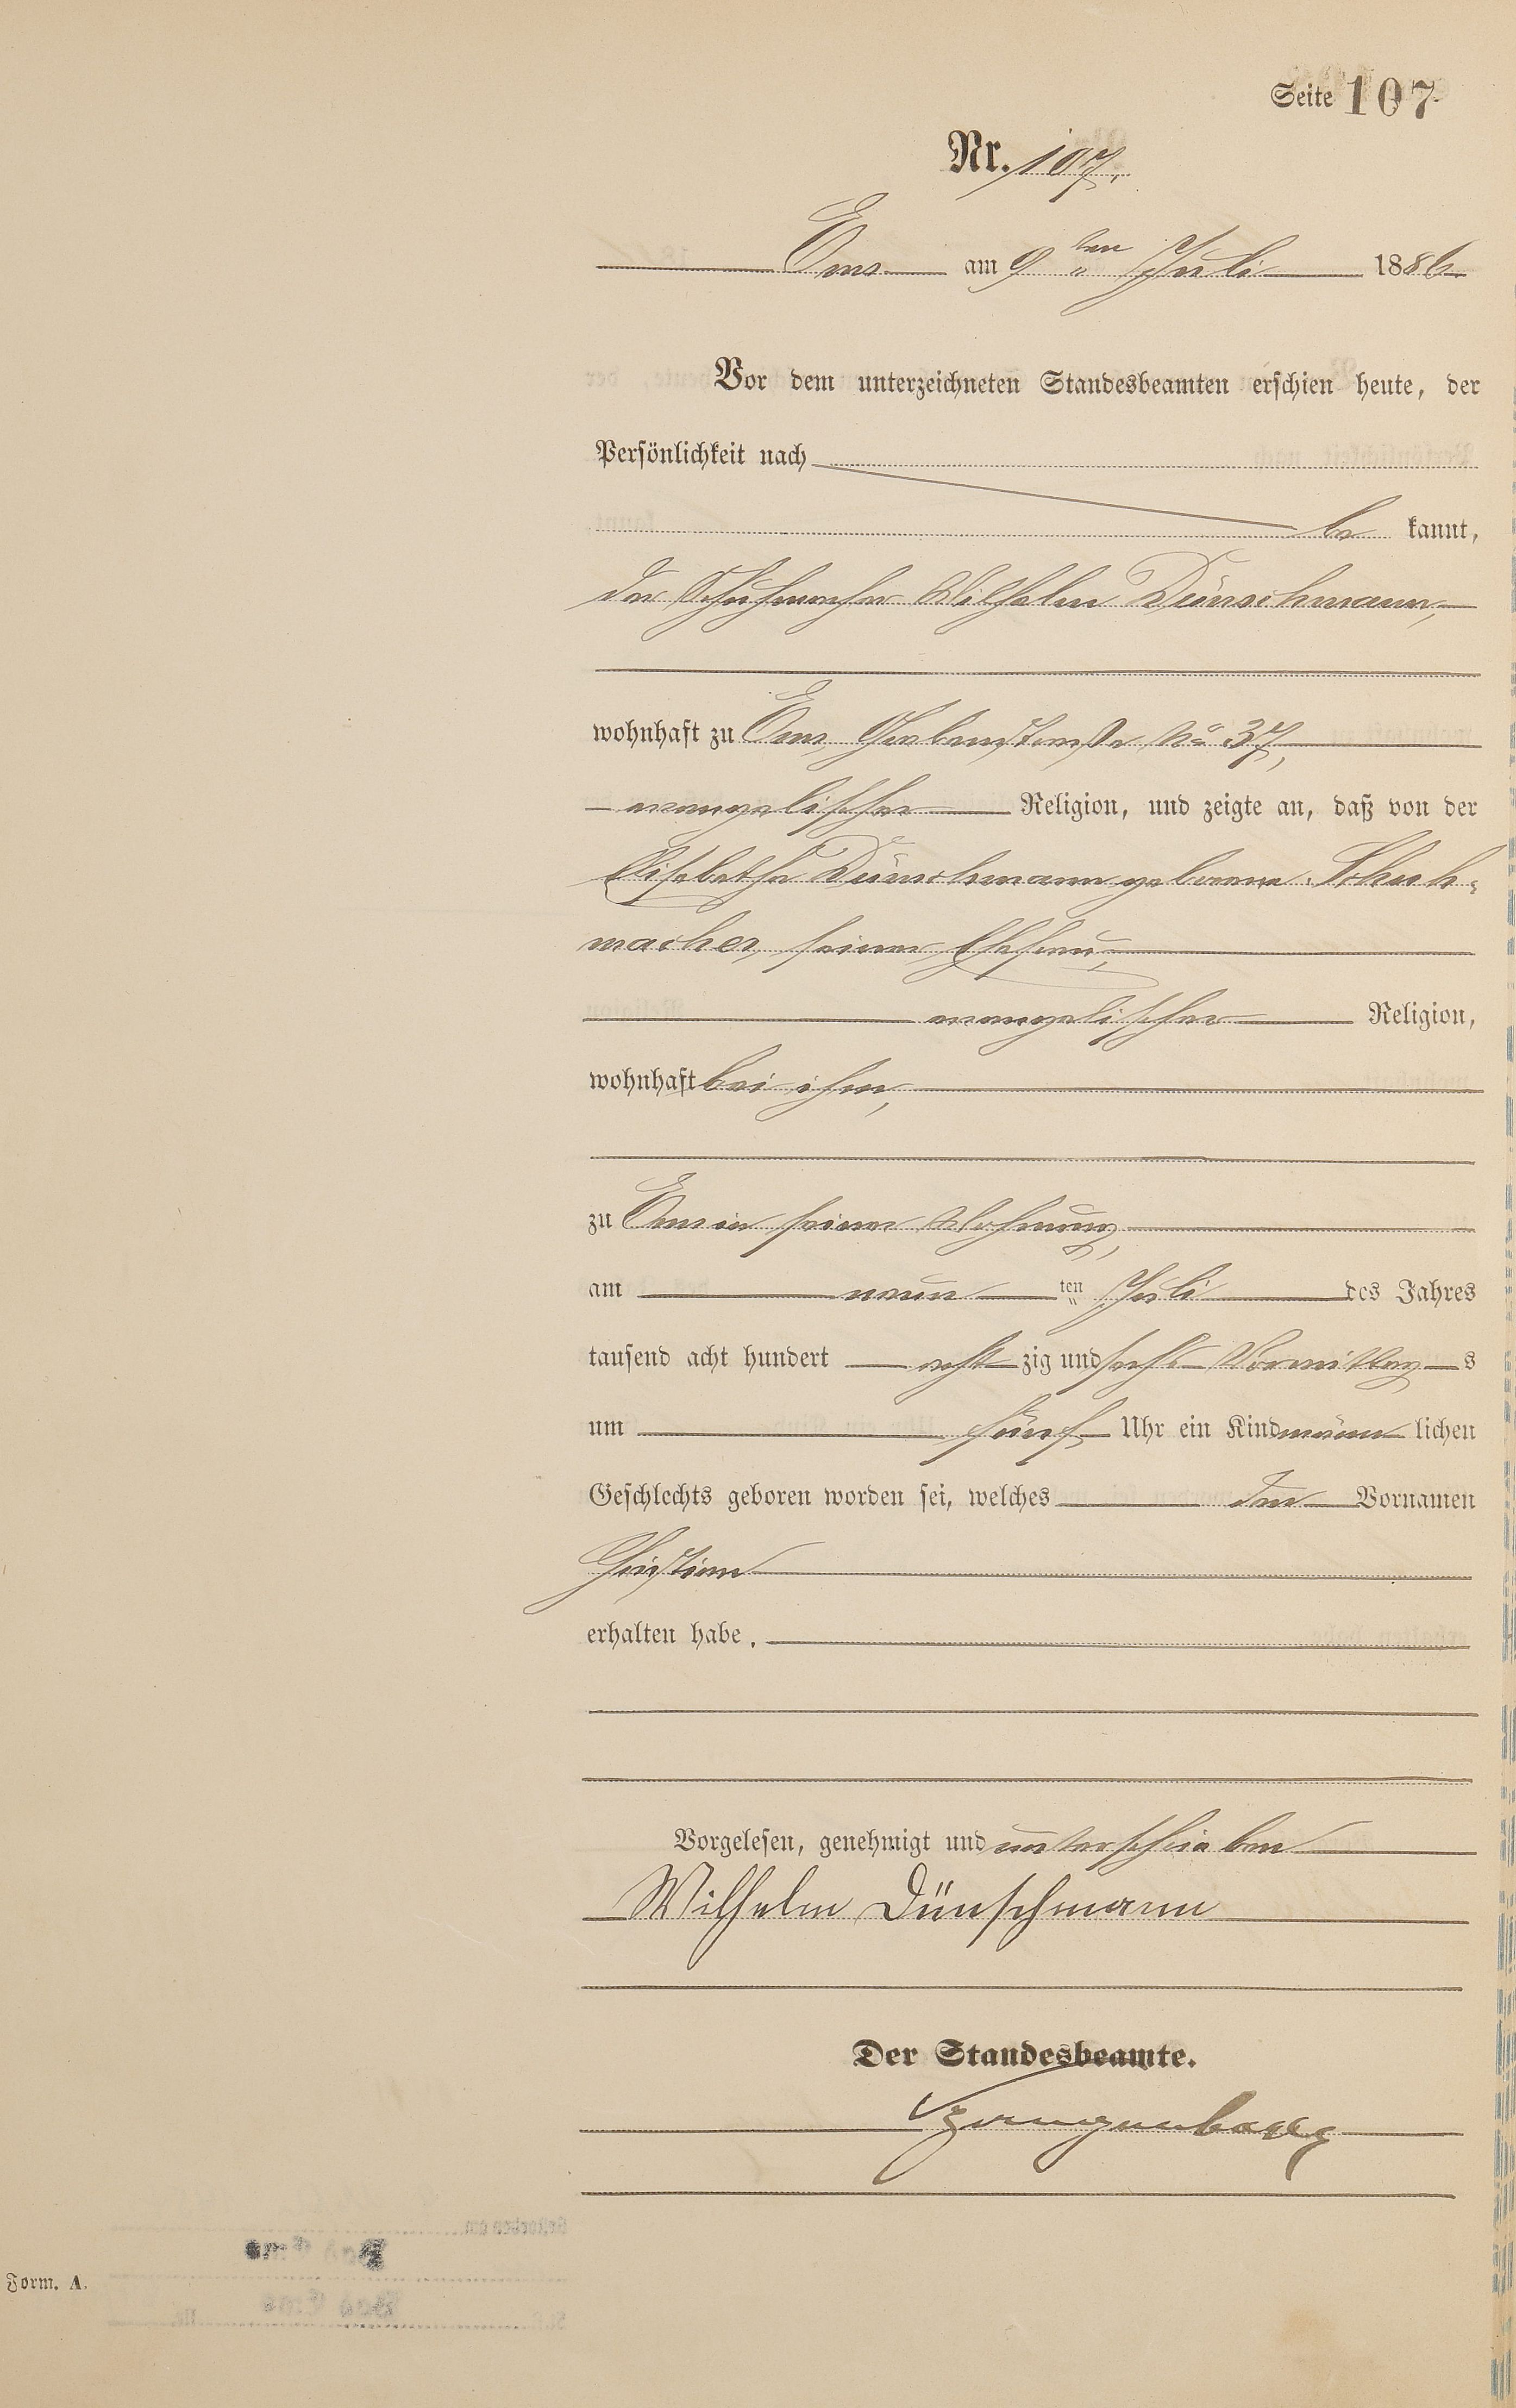 Seite 107
Nr. 107.
Ems am 9ten Juli 1886
Vor dem unterzeichneten Standesbeamten erschien heute, der
Persönlichkeit nach
be kannt,
der Schuhmacher Wilhelm Dünschmann,
wohnhaft zu Ems, Grabenstraße No 37,
evangelischer Religion, und zeigte an, daß von der
Elisabetha Dünschmann geborene Schuh-
macher, seiner Ehefrau,
evangelischer Religion,
wohnhaft bei ihm,
zu Ems in seiner Wohnung,
am neun ten Juli des Jahres
tausend acht hundert acht zig und sechs Vormittag s
um fünf Uhr ein Kind männ lichen
Geschlechts geboren worden sei, welches den Vornamen
Christian
erhalten habe.
Vorgelesen, genehmigt und unterschrieben
Wilhelm Dünschmann
Der Standesbeamte.
Form. A.